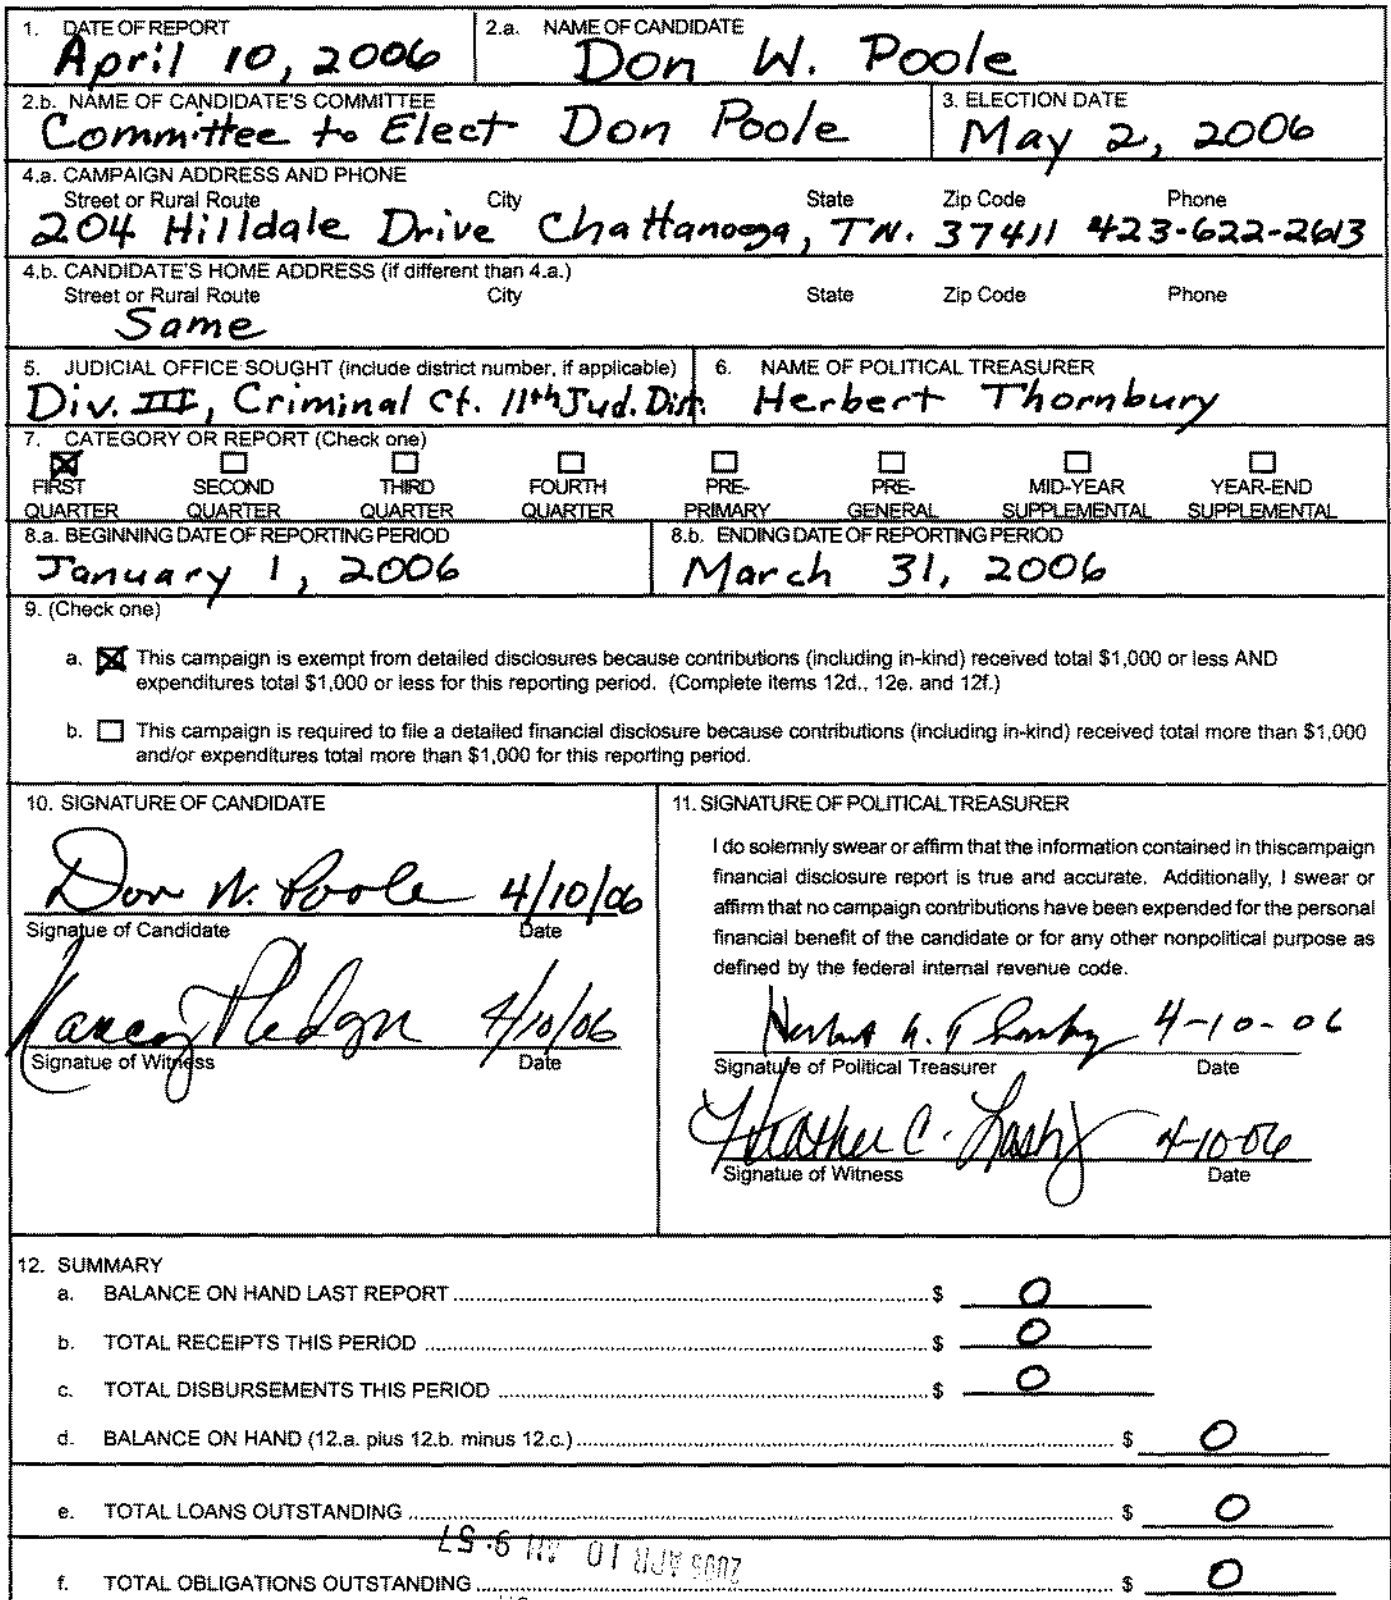 1. DATE OF REPORT 2.a. NAME OF CANDIDATE
April 10, 2006 Don W. Poole
2.b. NAME OF CANDIDATE'S COMMITTEE 3. ELECTION DATE
Committee to Elect Don Poole May 2, 2006
4.a. CAMPAIGN ADDRESS AND PHONE
Street or Rural Route City State Zip Code Phone
204 Hilldale Drive Chattanooga, TN. 37411 423-622-2613
4.b. CANDIDATE'S HOME ADDRESS (if different than 4.a.)
Street or Rural Route City State Zip Code Phone
Same
5. JUDICIAL OFFICE SOUGHT (include district number, if applicable) 6. NAME OF POLITICAL TREASURER
Div. III, Criminal Ct. 11th Jud. Dist. Herbert Thornbury
7. CATEGORY OR REPORT (Check one)
FIRST SECOND THIRD FOURTH PRE- PRE- MID-YEAR YEAR-END
QUARTER QUARTER QUARTER QUARTER PRIMARY GENERAL SUPPLEMENTAL SUPPLEMENTAL
8.a. BEGINNING DATE OF REPORTING PERIOD 8.b. ENDING DATE OF REPORTING PERIOD
January 1, 2006 March 31, 2006
9. (Check one)
a. This campaign is exempt from detailed disclosures because contributions (including in-kind) received total $1,000 or less AND
expenditures total $1,000 or less for this reporting period. (Complete items 12d., 12e. and 12f.)
b. This campaign is required to file a detailed financial disclosure because contributions (including in-kind) received total more than $1,000
and/or expenditures total more than $1,000 for this reporting period.
10. SIGNATURE OF CANDIDATE
Don W. Poole 4/10/06
Signatue of Candidate Date
Nancy 4/10/06
Signatue of Witness Date
11. SIGNATURE OF POLITICAL TREASURER
I do solemnly swear or affirm that the information contained in thiscampaign
financial disclosure report is true and accurate. Additionally, I swear or
affirm that no campaign contributions have been expended for the personal
financial benefit of the candidate or for any other nonpolitical purpose as
defined by the federal internal revenue code.
4-10-06
Signature of Political Treasurer Date
Heather C. 4-10-06
Signatue of Witness Date
12. SUMMARY
a. BALANCE ON HAND LAST REPORT $ 0
b. TOTAL RECEIPTS THIS PERIOD $ 0
c. TOTAL DISBURSEMENTS THIS PERIOD $ 0
d. BALANCE ON HAND (12.a. plus 12.b. minus 12.c.) $ 0
e. TOTAL LOANS OUTSTANDING $ 0
2006 APR 10 AM 9:57
f. TOTAL OBLIGATIONS OUTSTANDING $ 0